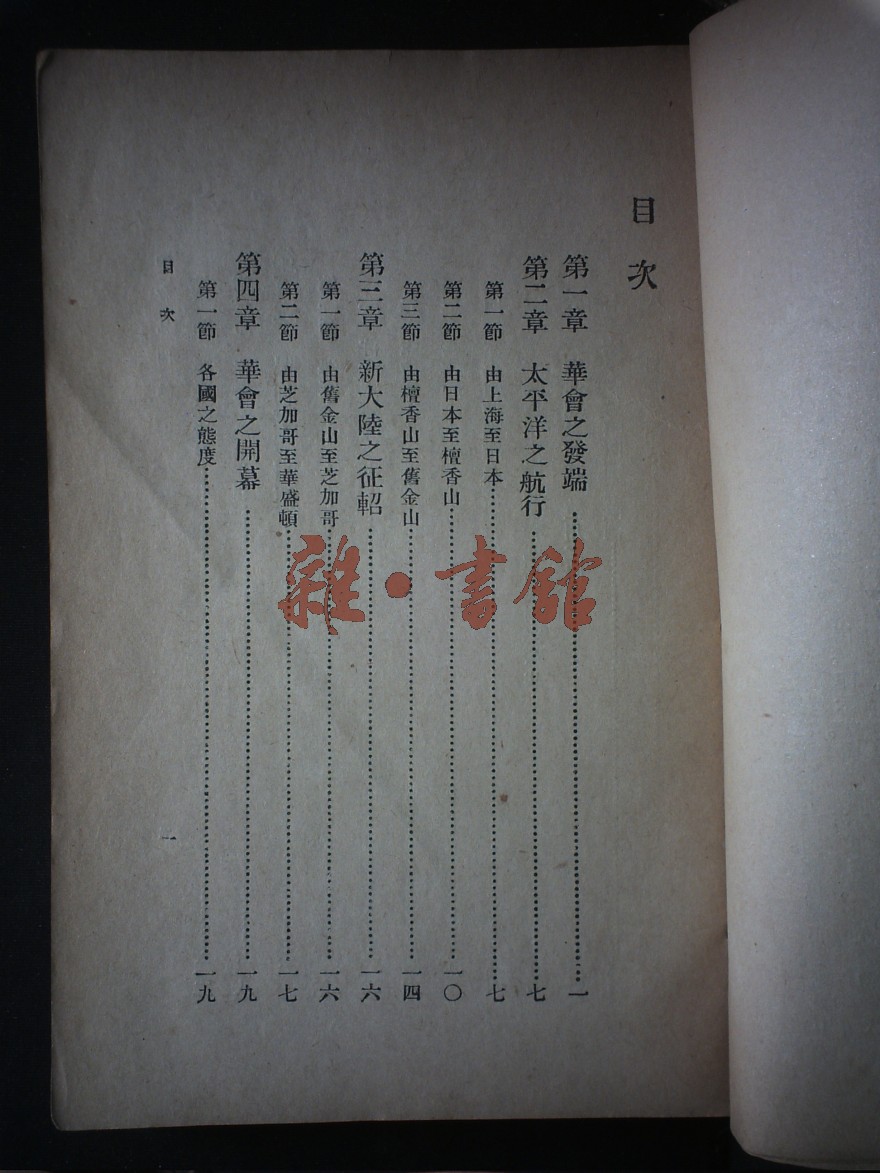 目次
第一章　華會之發端……一
第二章　太平洋之航行……七
第一節　由上海至日本……七
第二節　由日本至檀香山……一〇
第三節　由檀香山至舊金山……一四
第三章　新大陸之征軺……一六
第一節　由舊金山至芝加哥……一六
第二節　由芝加哥至華盛頓……一七
第四章　華會之開幕……一九
第一節　各國之態度……一九
目次　一
雜·書館